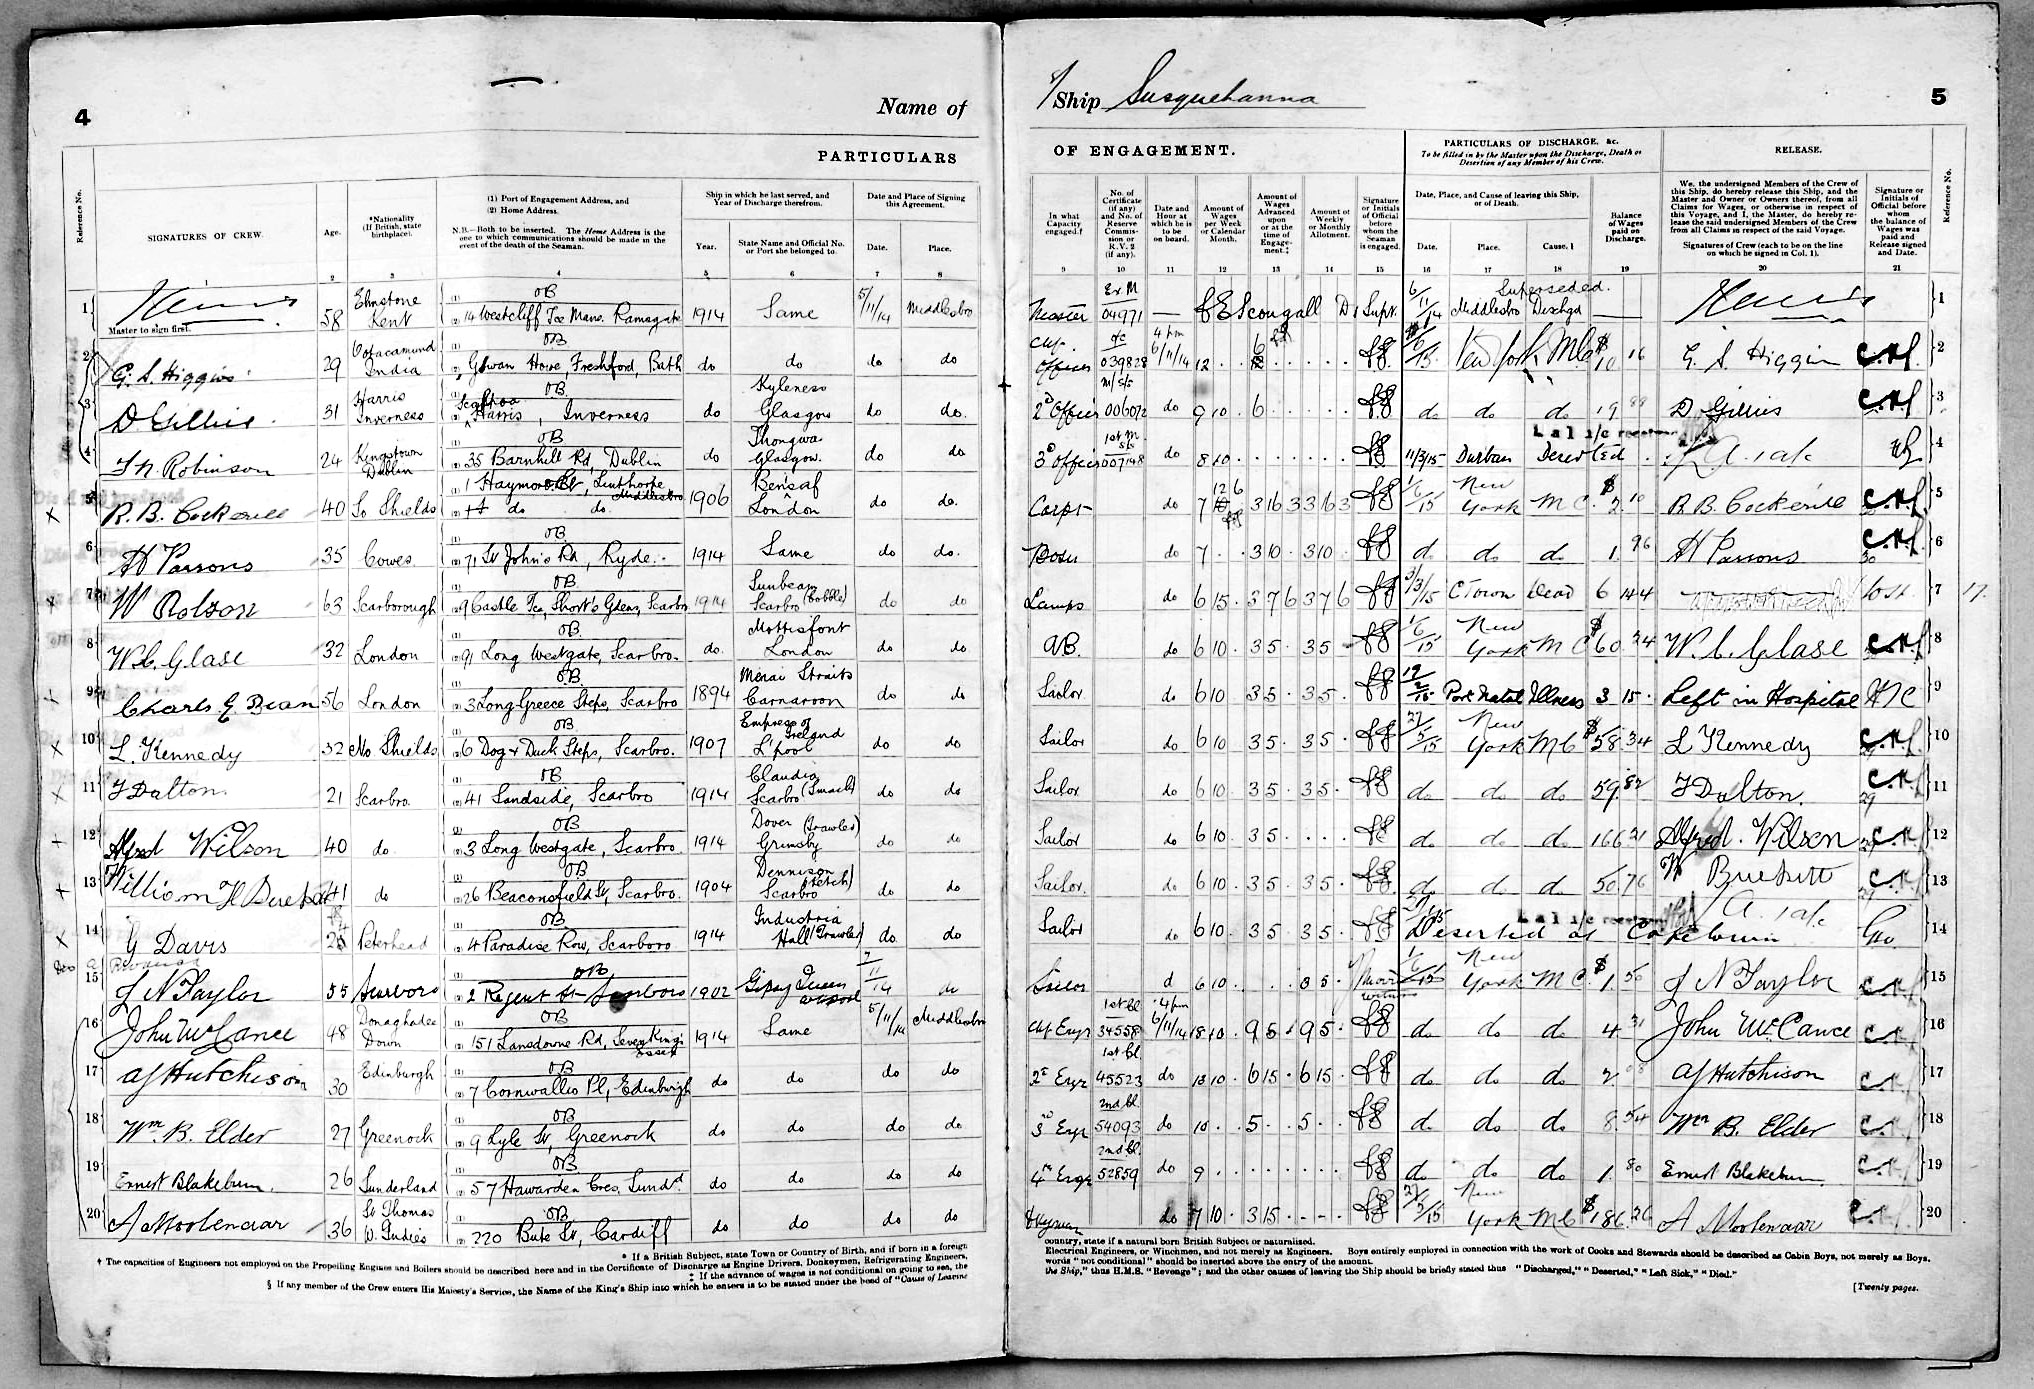 4
Name of
PARTICULARS
Reference No.
SIGNATURES OF CREW.
Age.
*Nationality
(If British, state
birthplace).
(1) Port of Engagement Address, and
(2) Home Address.
N.B.—Both to be inserted. The Home Address is the
one to which communications should be made in the
event of the death of the Seaman.
Ship in which he last served, and
Year of Discharge therefrom.
Year.
State Name and Official No.
or Port she belonged to.
Date and Place of Signing
this Agreement.
Date.
Place.
1 2 3 4 5 6 7 8
1 Master to sign first. 58 Elmstone Kent (1) OB (2) 14 Westcliff Tce Mans. Ramsgate 1914 Same 5/11/14 Middlesbro
2 G. S. Higgins 29 Ootacamund India (1) OB Freshford, Bath do do do do
3 D Gillies 31 Harris Inverness OB Scalpea Harris, Inverness do Kyleness Glasgow do do.
4 Robinson 24 Kingstown Dublin (1) OB (2) 35 Barnhill Rd, Dublin do Thongwa Glasgow. do do
5 R. B. Cockerill 40 So Shields (1) 1 Linthorpe Middlesbro (2) do do. 1906 London do do.
6 H Parsons 35 Cowes (1) OB. (2) 71 St John's Rd, Ryde. 1914 Same do do.
7 W Rolson 63 Scarborough (1) OB. (2) 9 Castle Tce, Short's Gdens, Scarbro 1914 Sunbeam Scarbro (Cobble) do do
8 W. C. Glase 32 London (1) OB. (2) 91 Long Westgate, Scarbro. do. Mottisfont London do do
9 Charls G Dean 56 London (1) OB. (2) 3 Long Greece Steps, Scarbro 1894 Menai Straits Carnarvon do do
10 L. Kennedy 32 No Shields (1) OB (2) 6 Dog & Duck Steps, Scarbro. 1907 Empress of Ireland L'pool do do
11 F Dalton 21 Scarbro. (1) OB (2) 41 Sandside, Scarbro 1914 Claudia Scarbro (Smack) do do
12 Alfred Wilson 40 do. (1) OB (2) 3 Long Westgate, Scarbro. 1914 Dover (Trawler) Grimsby do do
13 William H 41 do (1) OB (2) 26 Beaconsfield St, Scarbro. 1904 Dennison (Ketch) Scarbro do do
14 G Davis Peterhead (1) OB (2) 4 Paradise Row, Scarboro 1914 Industria Hull (Trawler) do do
15 J N Taylor 55 Scarboro (1) OB. (2) 2 Regent St Scarboro 1902 Gipsy Queen 7/11/14 do
16 John McCance 48 Donaghadee Down (1) OB (2) 151 Lansdowne Rd, Seven Kings Essex 1914 Same 5/11/14 Middlesbro
17 A J Hutchison 30 Edinburgh (1) OB (2) 7 Cornwallis Pl, Edinburgh do do do do
18 Wm. B. Elder 27 Greenock (1) OB (2) 9 Lyle St, Greenock do do do do
19 Ernest Blakeburn. 26 Sunderland (1) OB. (2) 57 Hawarden Cres, Sundd. do do do do
20 A Moolenaar 36 St Thomas W. Indies (1) OB (2) 220 Bute St, Cardiff do do do do
* If a British Subject, state Town or Country of Birth, and if born in a foreign
† The capacities of Engineers not employed on the Propelling Engines and Boilers should be described here and in the Certificate of Discharge as Engine Drivers, Donkeymen, Refrigerating Engineers,
‡ If the advance of wages is not conditional on going to sea, the
§ If any member of the Crew enters His Majesty's Service, the Name of the King's Ship into which he enters is to be stated under the head of "Cause of Leaving
Ship Susquehanna
5
OF ENGAGEMENT.
PARTICULARS OF DISCHARGE, &c.
To be filled in by the Master upon the Discharge, Death or
Desertion of any Member of his Crew.
RELEASE.
In what
Capacity
engaged.†
No. of
Certificate
(if any)
and No. of
Reserve
Commis-
sion or
R.V. 2
(if any).
Date and
Hour at
which he is
to be
on board.
Amount of
Wages
per Week
or Calendar
Month.
Amount of
Wages
Advanced
upon
or at the
time of
Engage-
ment.‡
Amount of
Weekly
or Monthly
Allotment.
Signature
or Initials
of Official
before
whom the
Seaman
is engaged.
Date, Place, and Cause of leaving this Ship,
or of Death.
Date.
Place.
Cause.
Balance
of Wages
paid on
Discharge.
We, the undersigned Members of the Crew of
this Ship, do hereby release this Ship, and the
Master and Owner or Owners thereof, from all
Claims for Wages, or otherwise in respect of
this Voyage, and I, the Master, do hereby re-
lease the said undersigned Members of the Crew
from all Claims in respect of the said Voyage.
Signatures of Crew (each to be on the line
on which he signed in Col. 1).
Signature or
Initials of
Official before
whom
the balance of
Wages was
paid and
Release signed
and Date.
Reference No.
9 10 11 12 13 14 15 16 17 18 19 20 21
Master Ex M 04971 — Scougall Supt. 6/11/14 Middlesbro Superseded. Dischgd 1
Officer 039828 4 pm 6/11/14 12 New York M C $10 16 G. S. Higgins 2
2d Officer 006072 do 9 10 6 do do do 19 88 D Gillies 3
3d Officer 007148 do 8 10 11/3/15 Durban Deserted 4
Carpr do 7 12 6 3 16 3 3 16 3 1/6/15 New York M C. $2 10 R. B. Cockerill 5
Bosn do 7 3 10 3 10 do do do 1 96 H Parsons 30 6
Lamps do 6 15 3 7 6 3 7 6 /3/15 C Town Dead 6 14 4 7 17.
AB. do 6 10 3 5 3 5 1/6/15 New York M C $60 24 W. C. Glase 8
Sailor do 6 10 3 5 3 5 Port Natal Illness 3 15 Left in Hospital 9
Sailor do 6 10 3 5 3 5 New York M C $58 34 L Kennedy 10
Sailor do 6 10 3 5 3 5 do do do 59 82 F Dalton. 29 11
Sailor do 6 10 3 5 do do do 166 21 Alfred. Wilson 29 12
Sailor. do 6 10 3 5 3 5 do do do 50 76 29 13
Sailor do 6 10 3 5 3 5 Deserted at Capetown 14
Sailor d 6 10 3 5 witness New York M C. $1 50 J N Taylor 15
Engr 1st Cl 34558 4 pm 6/11/14 18 10 9 5 9 5 do do do 4 31 John McCance 16
2d Engr 1st Cl. 45523 do 13 10 6 15 6 15 do do do 2 08 A J Hutchison 17
3d Engr 2nd Cl. 54093 do 10 5 5 do do do 8 54 Wm B. Elder 18
4th Engr 2nd Cl. 52859 do 9 do do do 1 80 Ernest Blakeburn 19
D'keyman do 7 10 3 15 New York M C $186 26 A Moolenaar 20
country, state if a natural born British Subject or naturalised.
Electrical Engineers, or Winchmen, and not merely as Engineers. Boys entirely employed in connection with the work of Cooks and Stewards should be described as Cabin Boys, not merely as Boys.
words "not conditional" should be inserted above the entry of the amount.
the Ship," thus H.M.S. "Revenge"; and the other causes of leaving the Ship should be briefly stated thus "Discharged," "Deserted," "Left Sick," "Died."
[Twenty pages.